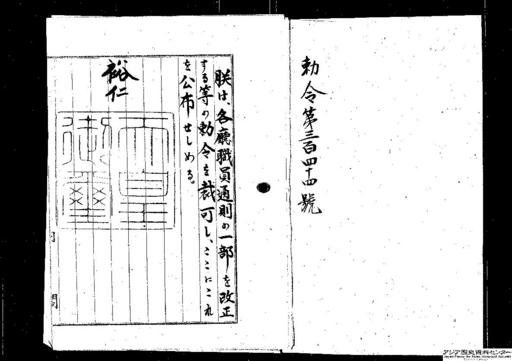 勅令第三百四十四號
朕は、各廳職員通則の一部を改正
する等の勅令を裁可し、ここにこれ
を公布せしめる。
裕仁
天皇御璽
内
閣
アジア歴史資料センター